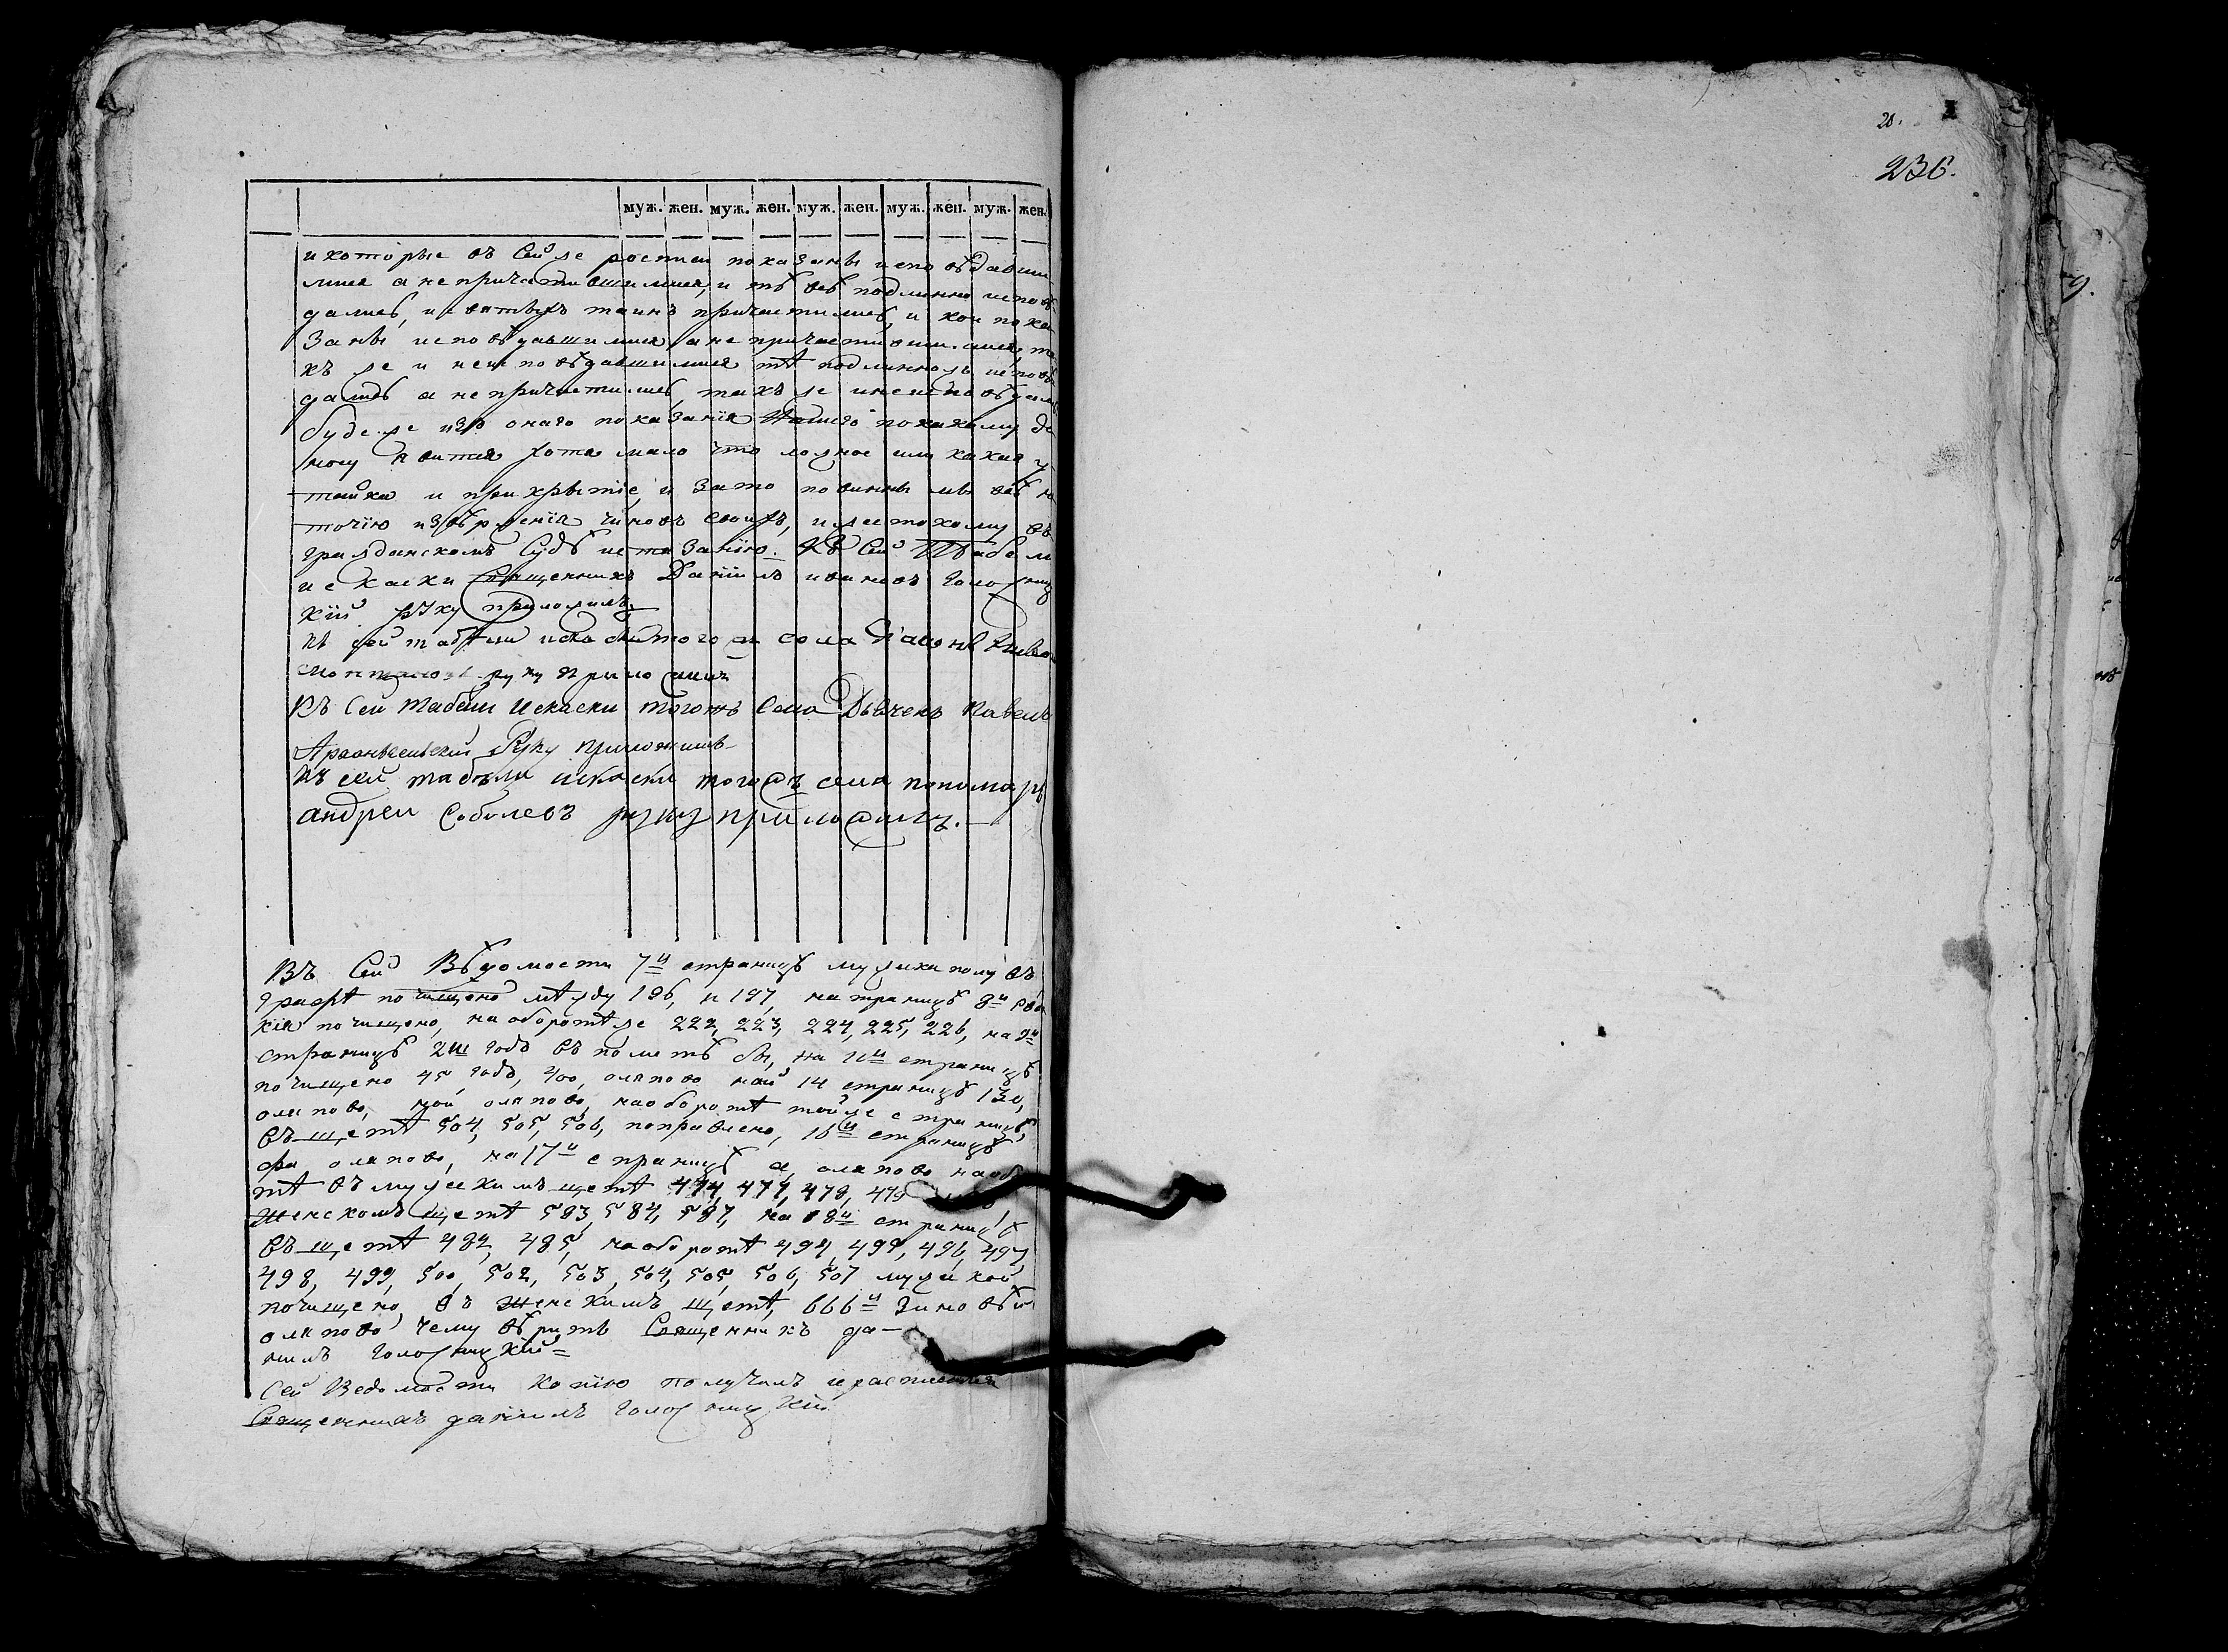 муж. жен. муж. жен. муж. жен. муж. жен. муж. жен.
и которые въ Сей же росписи показаны испо вѣдавши
мися а не причастившимися, и тѣ всѣ подлинно исповѣ
дались, и святыхъ таинъ причастились, и кои пока
заны исповѣдавшимися а не причастившимися, та
къ же и неисповѣдавшимися тѣ подлинножъ исповѣ
дались а не причастились, такъ же и неисповѣдались
буде же изъ онаго показанія Нашего покакому до
носу явится хотя мало что ложное или какая у
тайка и прикрытіе, и зато повинны мы всѣ не
точію изверженія чиновъ своихъ, и жестокому въ
гражданскомъ Судѣ истязанію. Къ Сей Табели
и скаски Священникъ Даніилъ ивановъ Голожниц
кій руку приложилъ
къ сей табѣли искаски того ж села
руку приложилъ
Къ Сей Табели Искаски тогожъ Села Дьячекъ Павелъ
Архангельскій Руку приложилъ
Къ сей табѣли искаски тогожъ села пономарь
андрей Соболевъ руку приложилъ.
Въ Сей Вѣдомости 7й страницѣ мужска полу въ
графѣ почищено мѣжду 196, и 197, на траницѣ 8й
кія почищено, на оборотѣ же 222, 223, 224, 225, 226, на 9й
страницѣ годъ въ полетѣ на страницѣ
почищено 45 годъ, 400, оляпово 14 страницѣ 130,
оляпово, мой оляпово, наоборотѣ тойже страницѣ
въ щетѣ 504, 505, 506, поправлено, 16й страницѣ
фи оляпово, на 17й страницѣ а, оляпово наобо
тѣ въ мужескимъ щетѣ 474, 477, 478, 479
Женскомъ щетѣ 583, 584, 587, на 18й страницѣ
въ щетѣ 484, 485, наоборотѣ 494, 495, 496, 497,
498, 499, 500, 502, 503, 504, 505, 506, 507 мужской
почищено, въ Женскимъ щетѣ, 666й Зиновѣй
оляпово чему вѣрить Священникъ да—
ниилъ Голожницкій=
Сей Ведомости Копію получилъ и росписался
Священникъ даніилъ Голожницкій
20.
236.